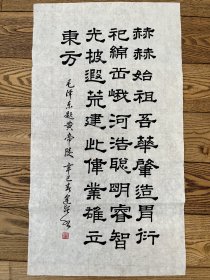 赫赫始祖吾華肇造胄衍
祀綿岳峨河浩聰明睿智
光披遐荒建此偉業雄立
東方
毛澤東題黃帝陵 辛巳